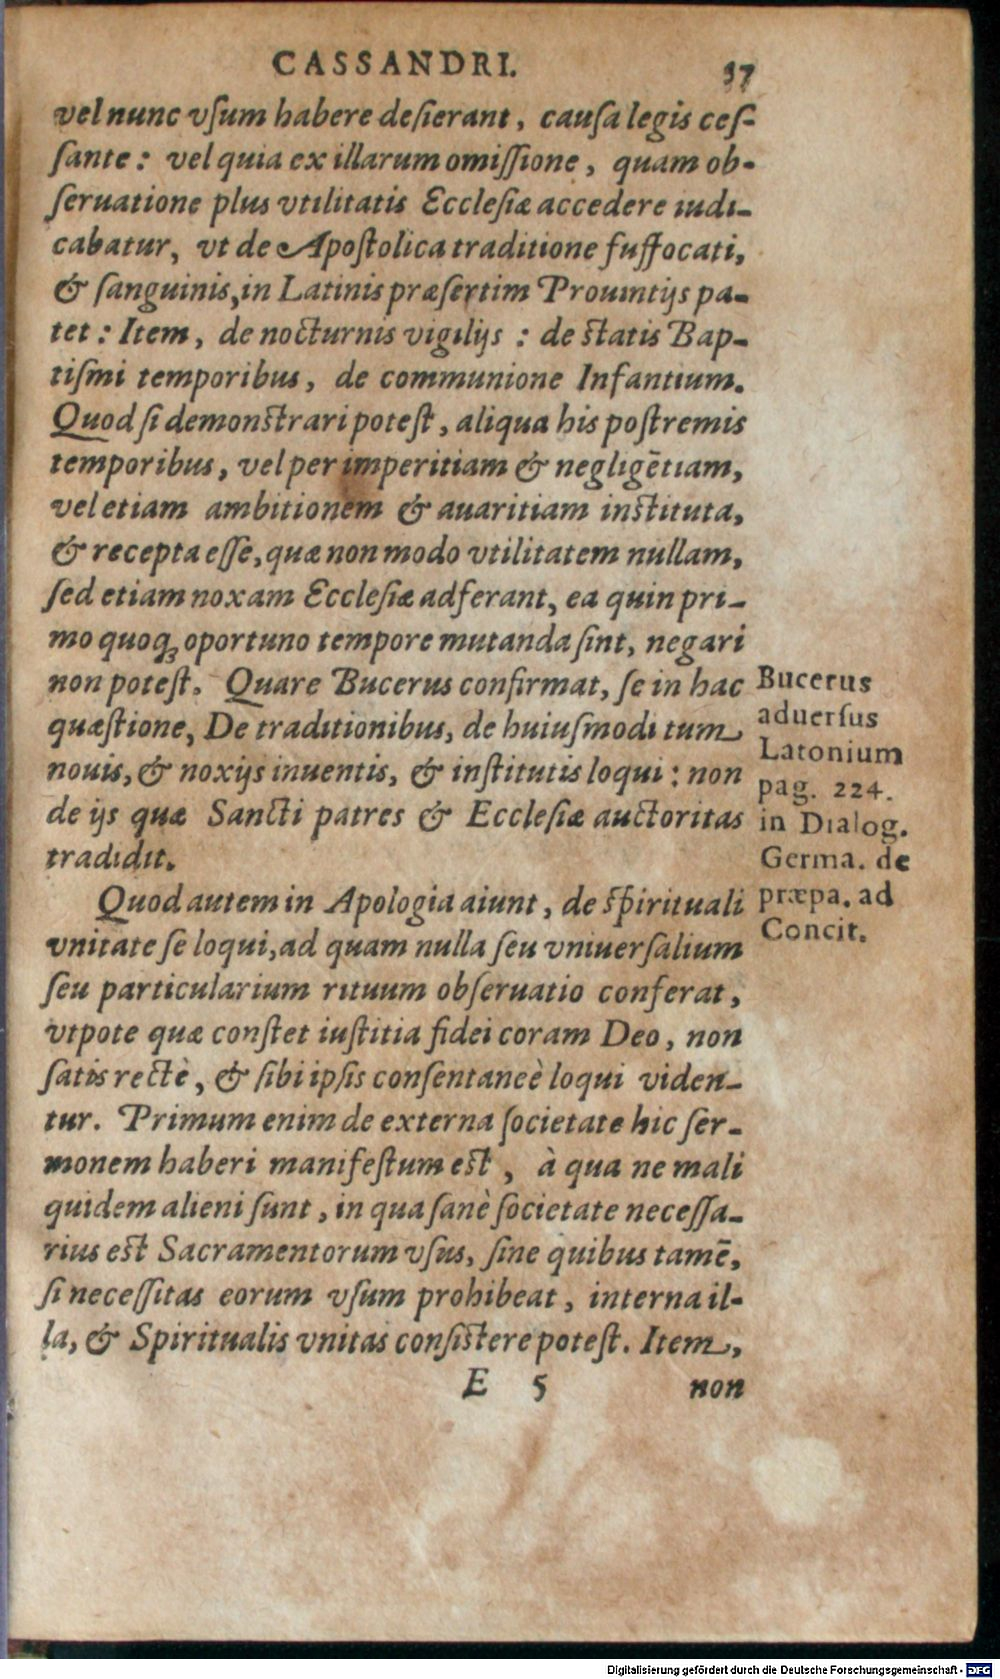 CASSANDRI. 37
vel nunc vſum habere deſierant, cauſa legis ceſ-
ſante: vel quia ex illarum omiſſione, quam ob-
ſeruatione plus vtilitatis Eccleſiæ accedere iudi-
cabatur, vt de Apoſtolica traditione ſuffocati,
& ſanguinis, in Latinis præſertim Prouintijs pa-
tet: Item, de nocturnis vigilijs: de ſtatis Bap-
tiſmi temporibus, de communione Infantium.
Quod ſi demonſtrari poteſt, aliqua his poſtremis
temporibus, vel per imperitiam & negligētiam,
vel etiam ambitionem & auaritiam inſtituta,
& recepta eſſe, quæ non modo vtilitatem nullam,
ſed etiam noxam Eccleſiæ adferant, ea quin pri-
mo quoqꝫ oportuno tempore mutanda ſint, negari
non poteſt. Quare Bucerus confirmat, ſe in hac
quæſtione, De traditionibus, de huiuſmodi tum
nouis, & noxijs inuentis, & inſtitutis loqui: non
de ijs quæ Sancti patres & Eccleſiæ auctoritas
tradidit.
Bucerus
aduerſus
Latonium
pag. 224.
in Dialog.
Germa. de
præpa. ad
Concit.
Quod autem in Apologia aiunt, de ſpirituali
vnitate ſe loqui, ad quam nulla ſeu vniuerſalium
ſeu particularium rituum obſeruatio conferat,
vtpote quæ conſtet iuſtitia fidei coram Deo, non
ſatis rectè, & ſibi ipſis conſentaneè loqui viden-
tur. Primum enim de externa ſocietate hic ſer-
monem haberi manifeſtum eſt, à qua ne mali
quidem alieni ſunt, in qua ſanè ſocietate neceſſa-
rius eſt Sacramentorum vſus, ſine quibus tamē,
ſi neceſſitas eorum vſum prohibeat, interna il-
la, & Spiritualis vnitas conſiſtere poteſt. Item,
E 5 non
Digitalisierung gefördert durch die Deutsche Forschungsgemeinschaft - DFG